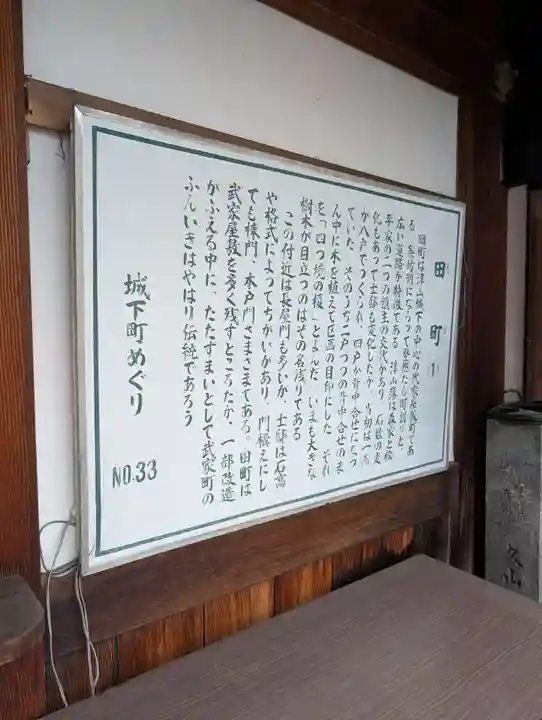 田町 1
田町は津山城下の中心的武家屋敷町であ
る 条坊制にならって整然たる町割りと、
広い道路が特徴である 津山藩は森家と松
平家の二つの領主の交代があり 石高の変
化もあって士邸も変化したが、当初は一区
が八戸でつくられ、四戸が背中合せになっ
ていた。そのうち二戸づつの背中合せのま
ん中に木を植えて区画の目印にした それ
を「四つ境の榎」とよんだ いまも大きな
樹木が目立つのはその名残りである
この付近は長屋門も多いが、士邸は石高
や格式によってちがいがあり 門構えにし
ても棟門 木戸門さまざまである。田町は
武家屋敷を多く残すところだが、一部改造
がふえる中に、たたずまいとして武家町の
ふんいきはやはり伝統であろう
城下町めぐり
NO.33
久山